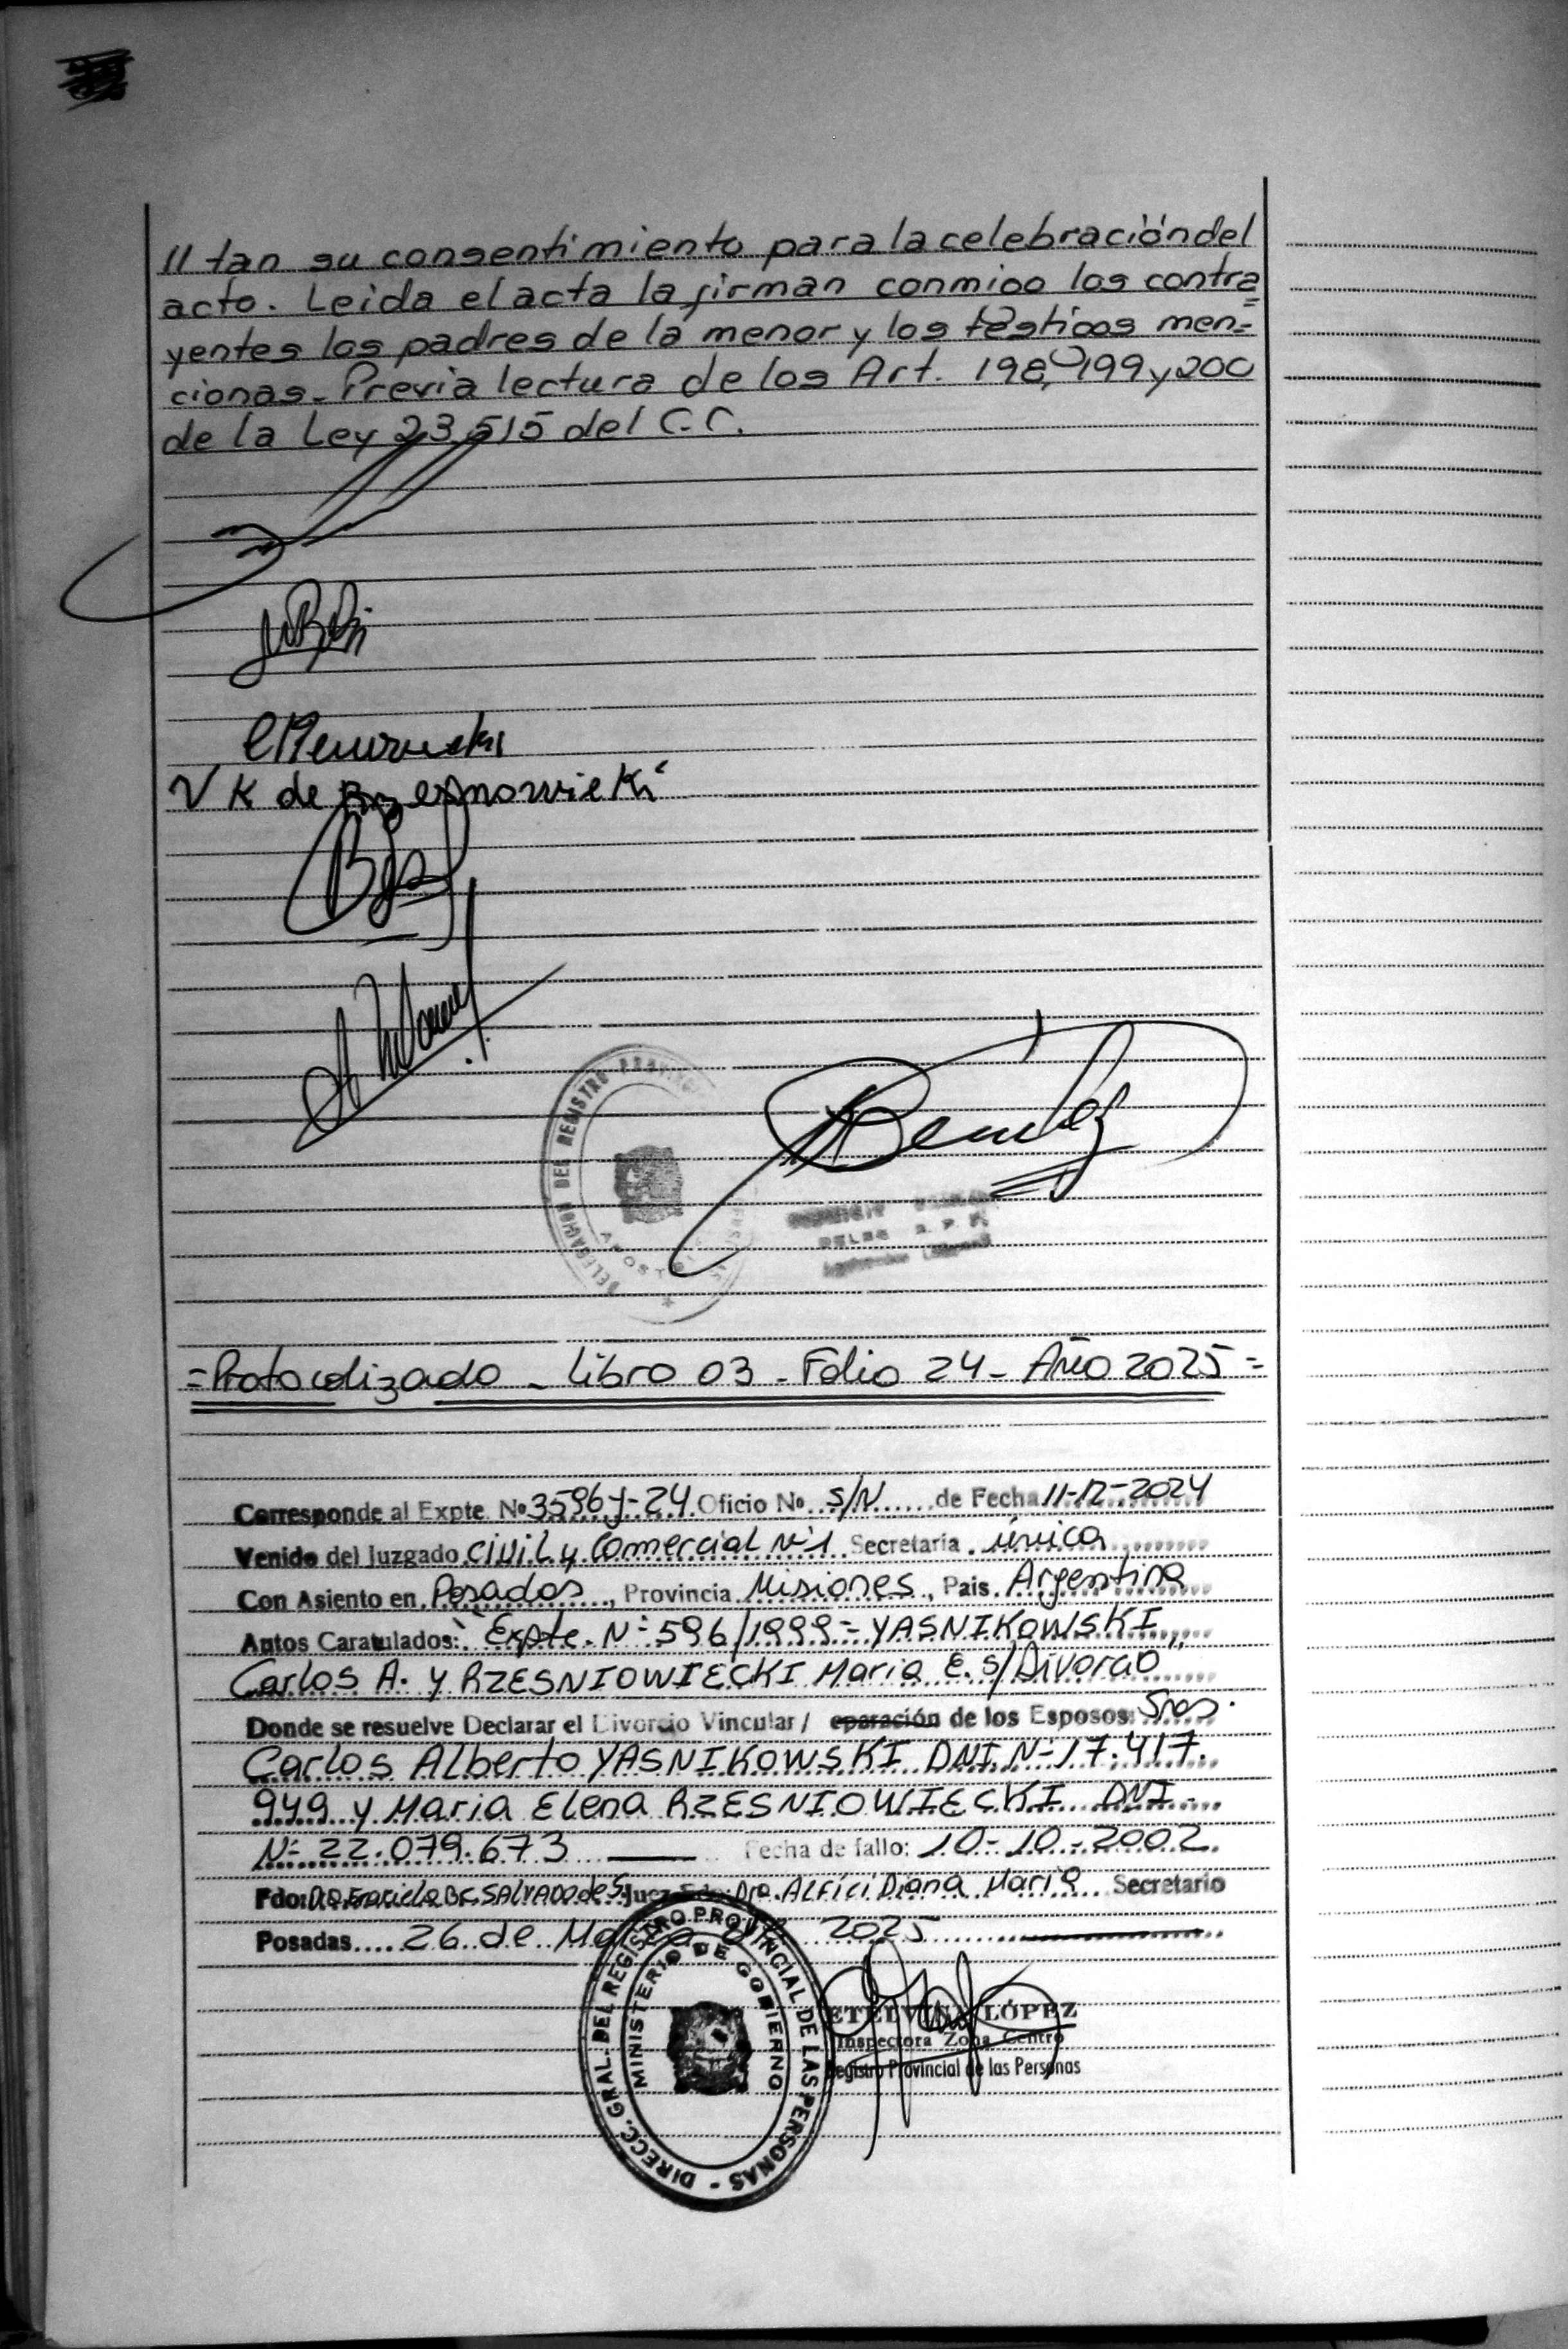 // tan su consentimiento para la celebración del
acto. Leida el acta la firman conmigo los contra=
yentes los padres de la menor y los testigos men=
cionas. Previa lectura de los Art. 198, 199 y 200
de la Ley 23.515 del C.C.
V K de
DELEGACION DEL REGISTRO PROVINCIAL
APOSTOLES
Benitez
=Protocolizado - Libro 03 - Folio 24 - Año 2025=
Corresponde al Expte. Nº 3596-J-24 Oficio Nº S/N de Fecha 11-12-2024
Venido del Juzgado Civil y Comercial Nº1 Secretaria única
Con Asiento en Posadas, Provincia Misiones, Pais Argentina
Autos Caratulados: "Expte. Nº 596/1999 - YASNIKOWSKI
Carlos A. y RZESNIOWIECKI Maria E. s/Divorcio"
Donde se resuelve Declarar el Divorcio Vincular / eparación de los Esposos: Sres.
Carlos Alberto YASNIKOWSKI DNI Nº 17.417.
949 y Maria Elena RZESNIOWIECKI DNI
Nº 22.079.673 Fecha de fallo: 10-10-2002.
Fdo: Dra. Graciela SALVADO de S. Juez Fdo: Dra. ALFICI Diana Maria Secretario
Posadas 26 de Marzo de 2025
DIRECC. GRAL. DEL REGISTRO PROVINCIAL DE LAS PERSONAS -
MINISTERIO DE GOBIERNO
ETELVINA LÓPEZ
Inspectora Zona Centro
Registro Provincial de las Personas